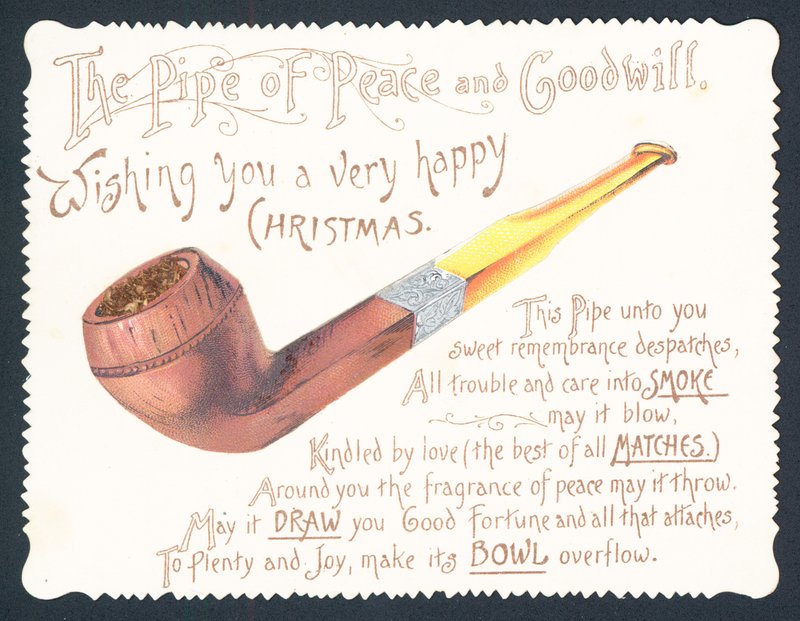 The Pipe of Peace and Goodwill.
Wishing you a very happy
CHRISTMAS.
This Pipe unto you
sweet remembrance despatches,
All trouble and care into SMOKE
may it blow,
Kindled by love (the best of all MATCHES.)
Around you the fragrance of peace may it throw.
May it DRAW you Good Fortune and all that attaches,
To Plenty and Joy, make its BOWL overflow.